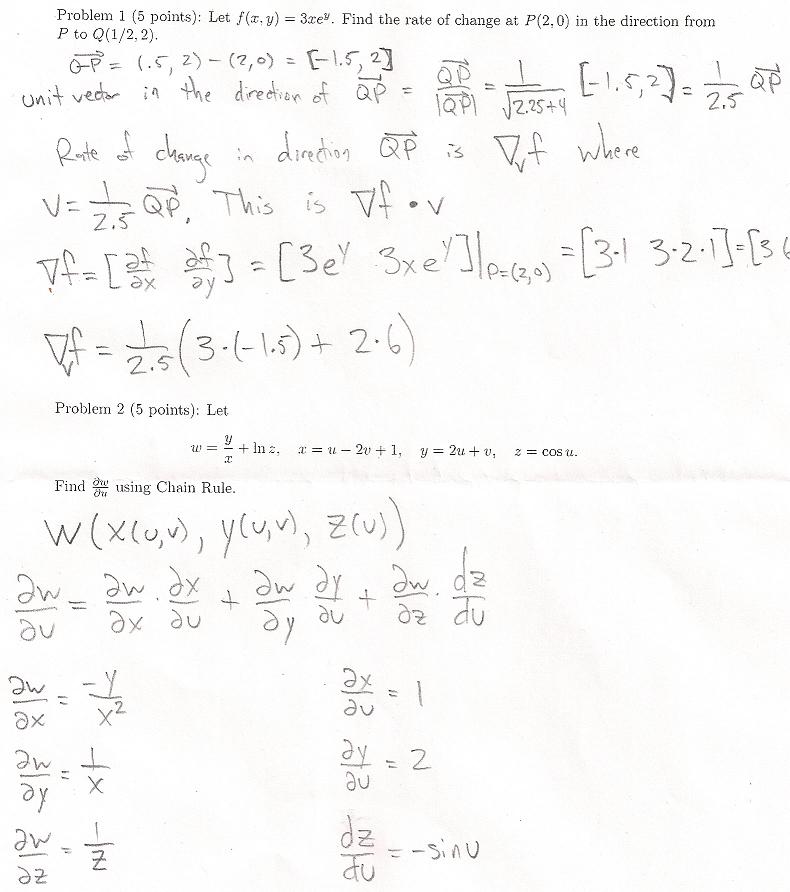 Problem 1 (5 points): Let f(x, y) = 3xe^y. Find the rate of change at P(2, 0) in the direction from
P to Q(1/2, 2).
QP = (.5, 2) - (2,0) = [-1.5, 2]
unit vector in the direction of QP = QP/|QP| = 1/√(2.25+4) [-1.5, 2] = 1/2.5 QP
Rate of change in direction QP is ∇_v f where
V = 1/2.5 QP. This is ∇f • v
∇f = [∂f/∂x ∂f/∂y] = [3e^y 3xe^y]|P=(2,0) = [3·1 3·2·1] = [3 6
∇_v f = 1/2.5 (3·(-1.5) + 2·6)
Problem 2 (5 points): Let
w = y/x + ln z, x = u − 2v + 1, y = 2u + v, z = cos u.
Find ∂w/∂u using Chain Rule.
W(x(u,v), y(u,v), z(u))
∂w/∂u = ∂w/∂x · ∂x/∂u + ∂w/∂y ∂y/∂u + ∂w/∂z · dz/du
∂w/∂x = -y/x² ∂x/∂u = 1
∂w/∂y = 1/x ∂y/∂u = 2
∂w/∂z = 1/z dz/du = -sin u